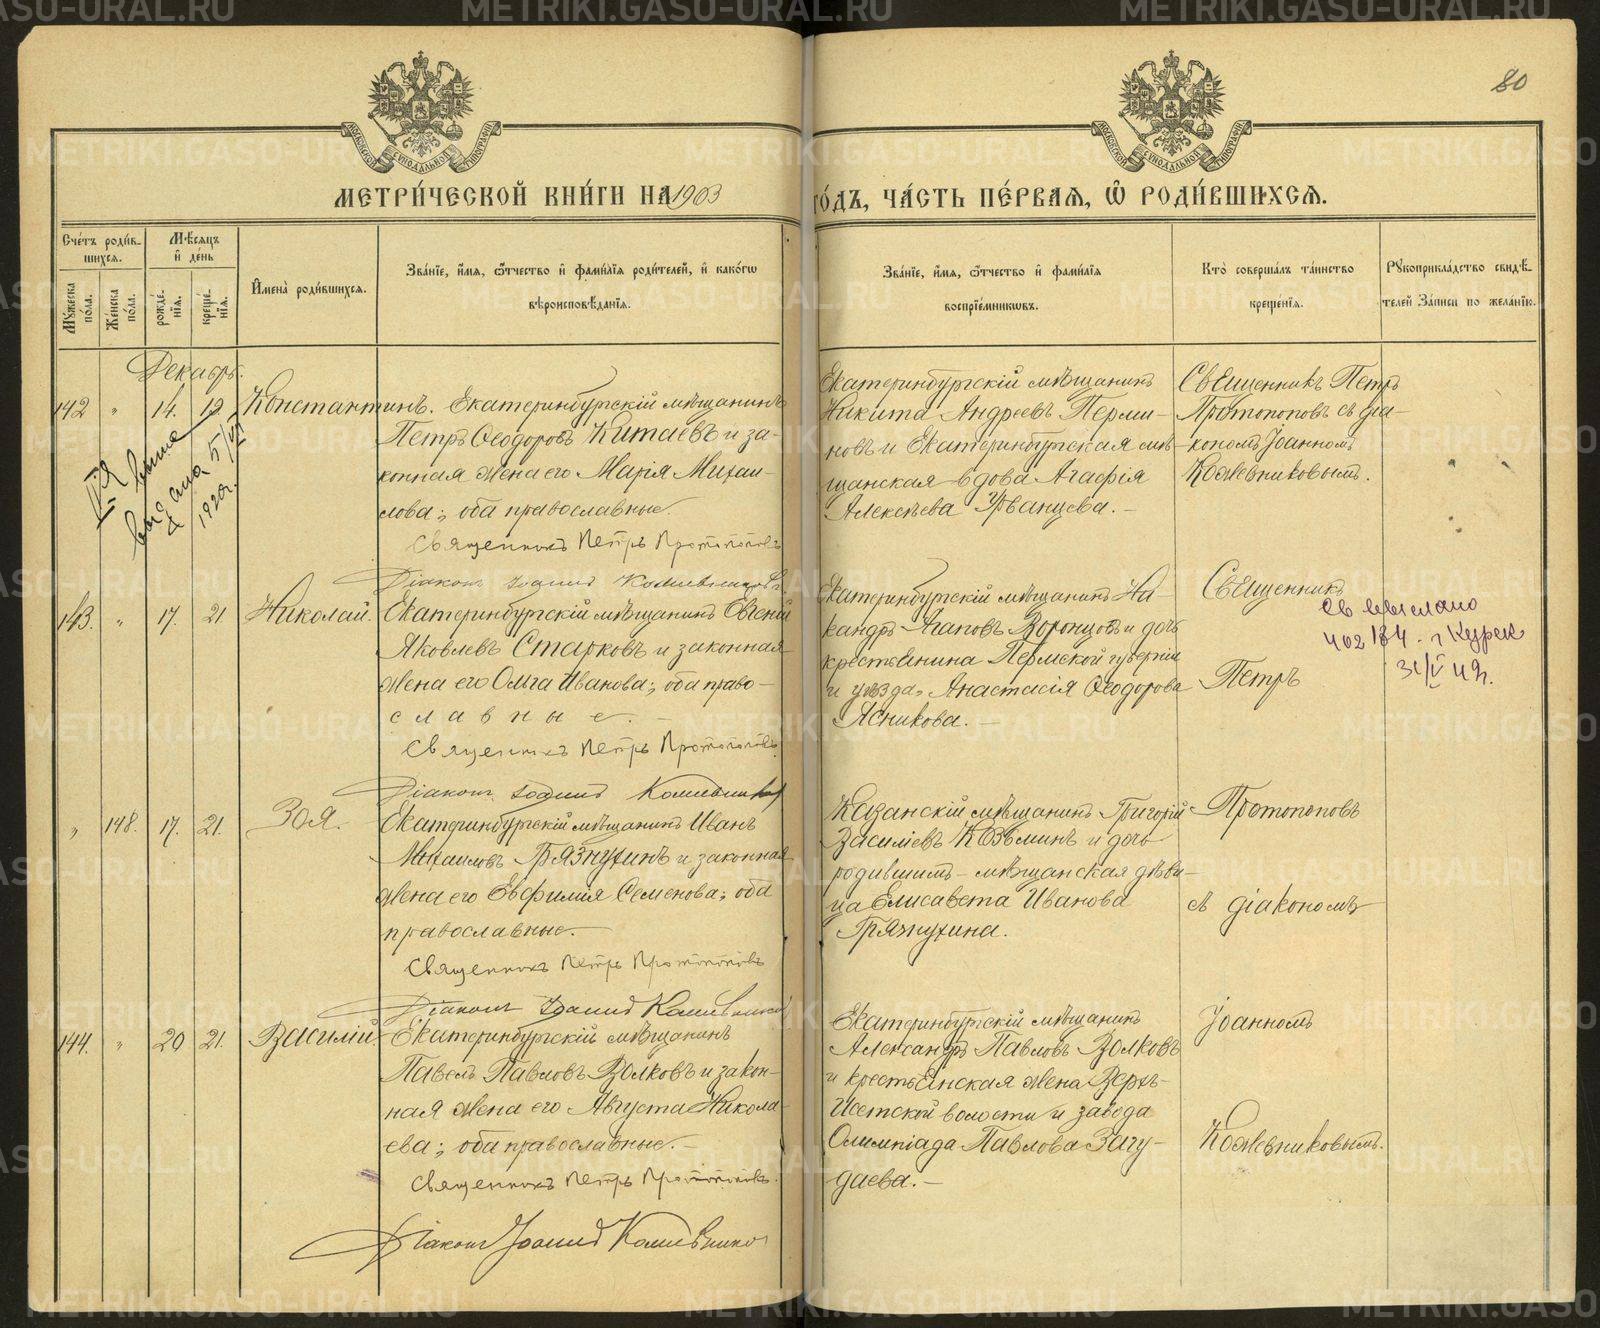 80
МЕТРИ́ЧЕСКОЙ КНИ́ГИ НА 1903 ГО́ДЪ, ЧА́СТЬ ПЕ́РВАЯ, Ѿ РОДИ́ВШИХСЯ.
Сче́тъ роди́в-
шихся.
Му́жеска по́ла.
Же́нска по́ла.
Мѣ́сяцъ и де́нь
рожде́-
нїя.
креще́-
нїя.
Имена̀ роди́вшихся.
Зва́нїе, и́мя, ѻ́тчество и фами́лїя роди́телей, и како́гѡ
вѣроисповѣ́данїя.
Зва́нїе, и́мя, ѻ́тчество и фами́лїя
воспрїе́мникѡвъ.
Кто̀ соверша́лъ та́инство
креще́нїя.
Рꙋкоприкла́дство свидѣ́-
телей за́писи по жела́нїю.
Декабрь.
142 " 14. 19. Константинъ. Екатеринбургскій мѣщанинъ
Петръ Ѳеодоровъ Китаевъ и за-
конная жена его Марія Михаи-
лова; оба православные.
Священникъ Петръ Протопоповъ
Діаконъ Іоаннъ Кожевниковъ
выдана 5/VI
1920 г.
Екатеринбургскій мѣщанинъ
Никита Андреевъ Перми-
новъ и Екатеринбургская мѣ-
щанская вдова Агафія
Алексѣева Урванцева.
Священникъ Петръ
Протопоповъ съ діа-
кономъ Іоанномъ
Кожевниковымъ.
143. " 17. 21. Николай. Екатеринбургскій мѣщанинъ Евгеній
Яковлевъ Старковъ и законная
жена его Ольга Иванова; оба право-
славные.
Священникъ Петръ Протопоповъ
Діаконъ Іоаннъ Кожевниковъ
Екатеринбургскій мѣщанинъ Ни-
кандръ Агаповъ Воронцовъ и дочь
крестьянина Пермской губерніи
и уѣзда, Анастасія Ѳеодорова
Ясникова.
Священникъ
Петръ
св выслано
402184 - г Курск
31/V 49 г.
" 148. 17. 21. Зоя. Екатеринбургскій мѣщанинъ Иванъ
Михаиловъ Грязнухинъ и законная
жена его Евфимія Семенова; оба
православные.
Священникъ Петръ Протопоповъ
Діаконъ Іоаннъ Кожевниковъ
Казанскій мѣщанинъ Григорій
Василіевъ Козьминъ и дочь
родившихъ - мѣщанская дѣви-
ца Елисавета Иванова
Грязнухина.
Протопоповъ
съ діакономъ
144. " 20 21. Василій. Екатеринбургскій мѣщанинъ
Павелъ Павловъ Волковъ и закон-
ная жена его Августа Никола-
ева; оба православные.
Священникъ Петръ Протопоповъ.
Діаконъ Іоаннъ Кожевниковъ
Екатеринбургскій мѣщанинъ
Александръ Павловъ Волковъ
и крестьянская жена Верхъ-
Исетской волости и завода
Олимпіада Павлова Загу-
даева.
Іоанномъ
Кожевниковымъ.
METRIKI.GASO-URAL.RU